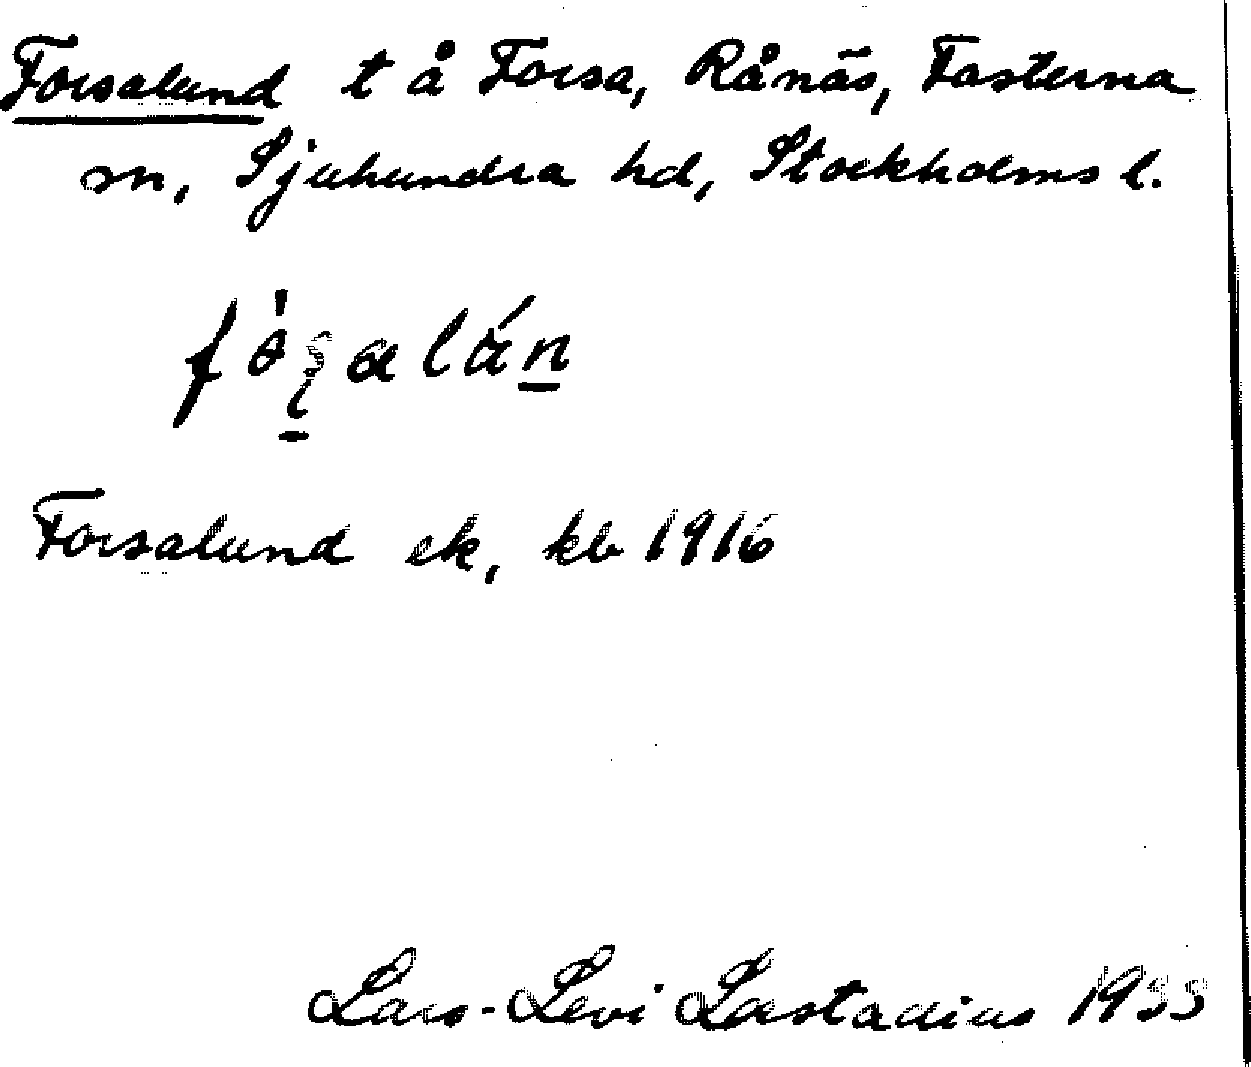 Forsalund t å Forsa, Rånäs, Fasterna
sn, Sjuhundra hd, Stockholms l.
Forsalund ek, kb 1916
Lars-Levi Læstadius 1935